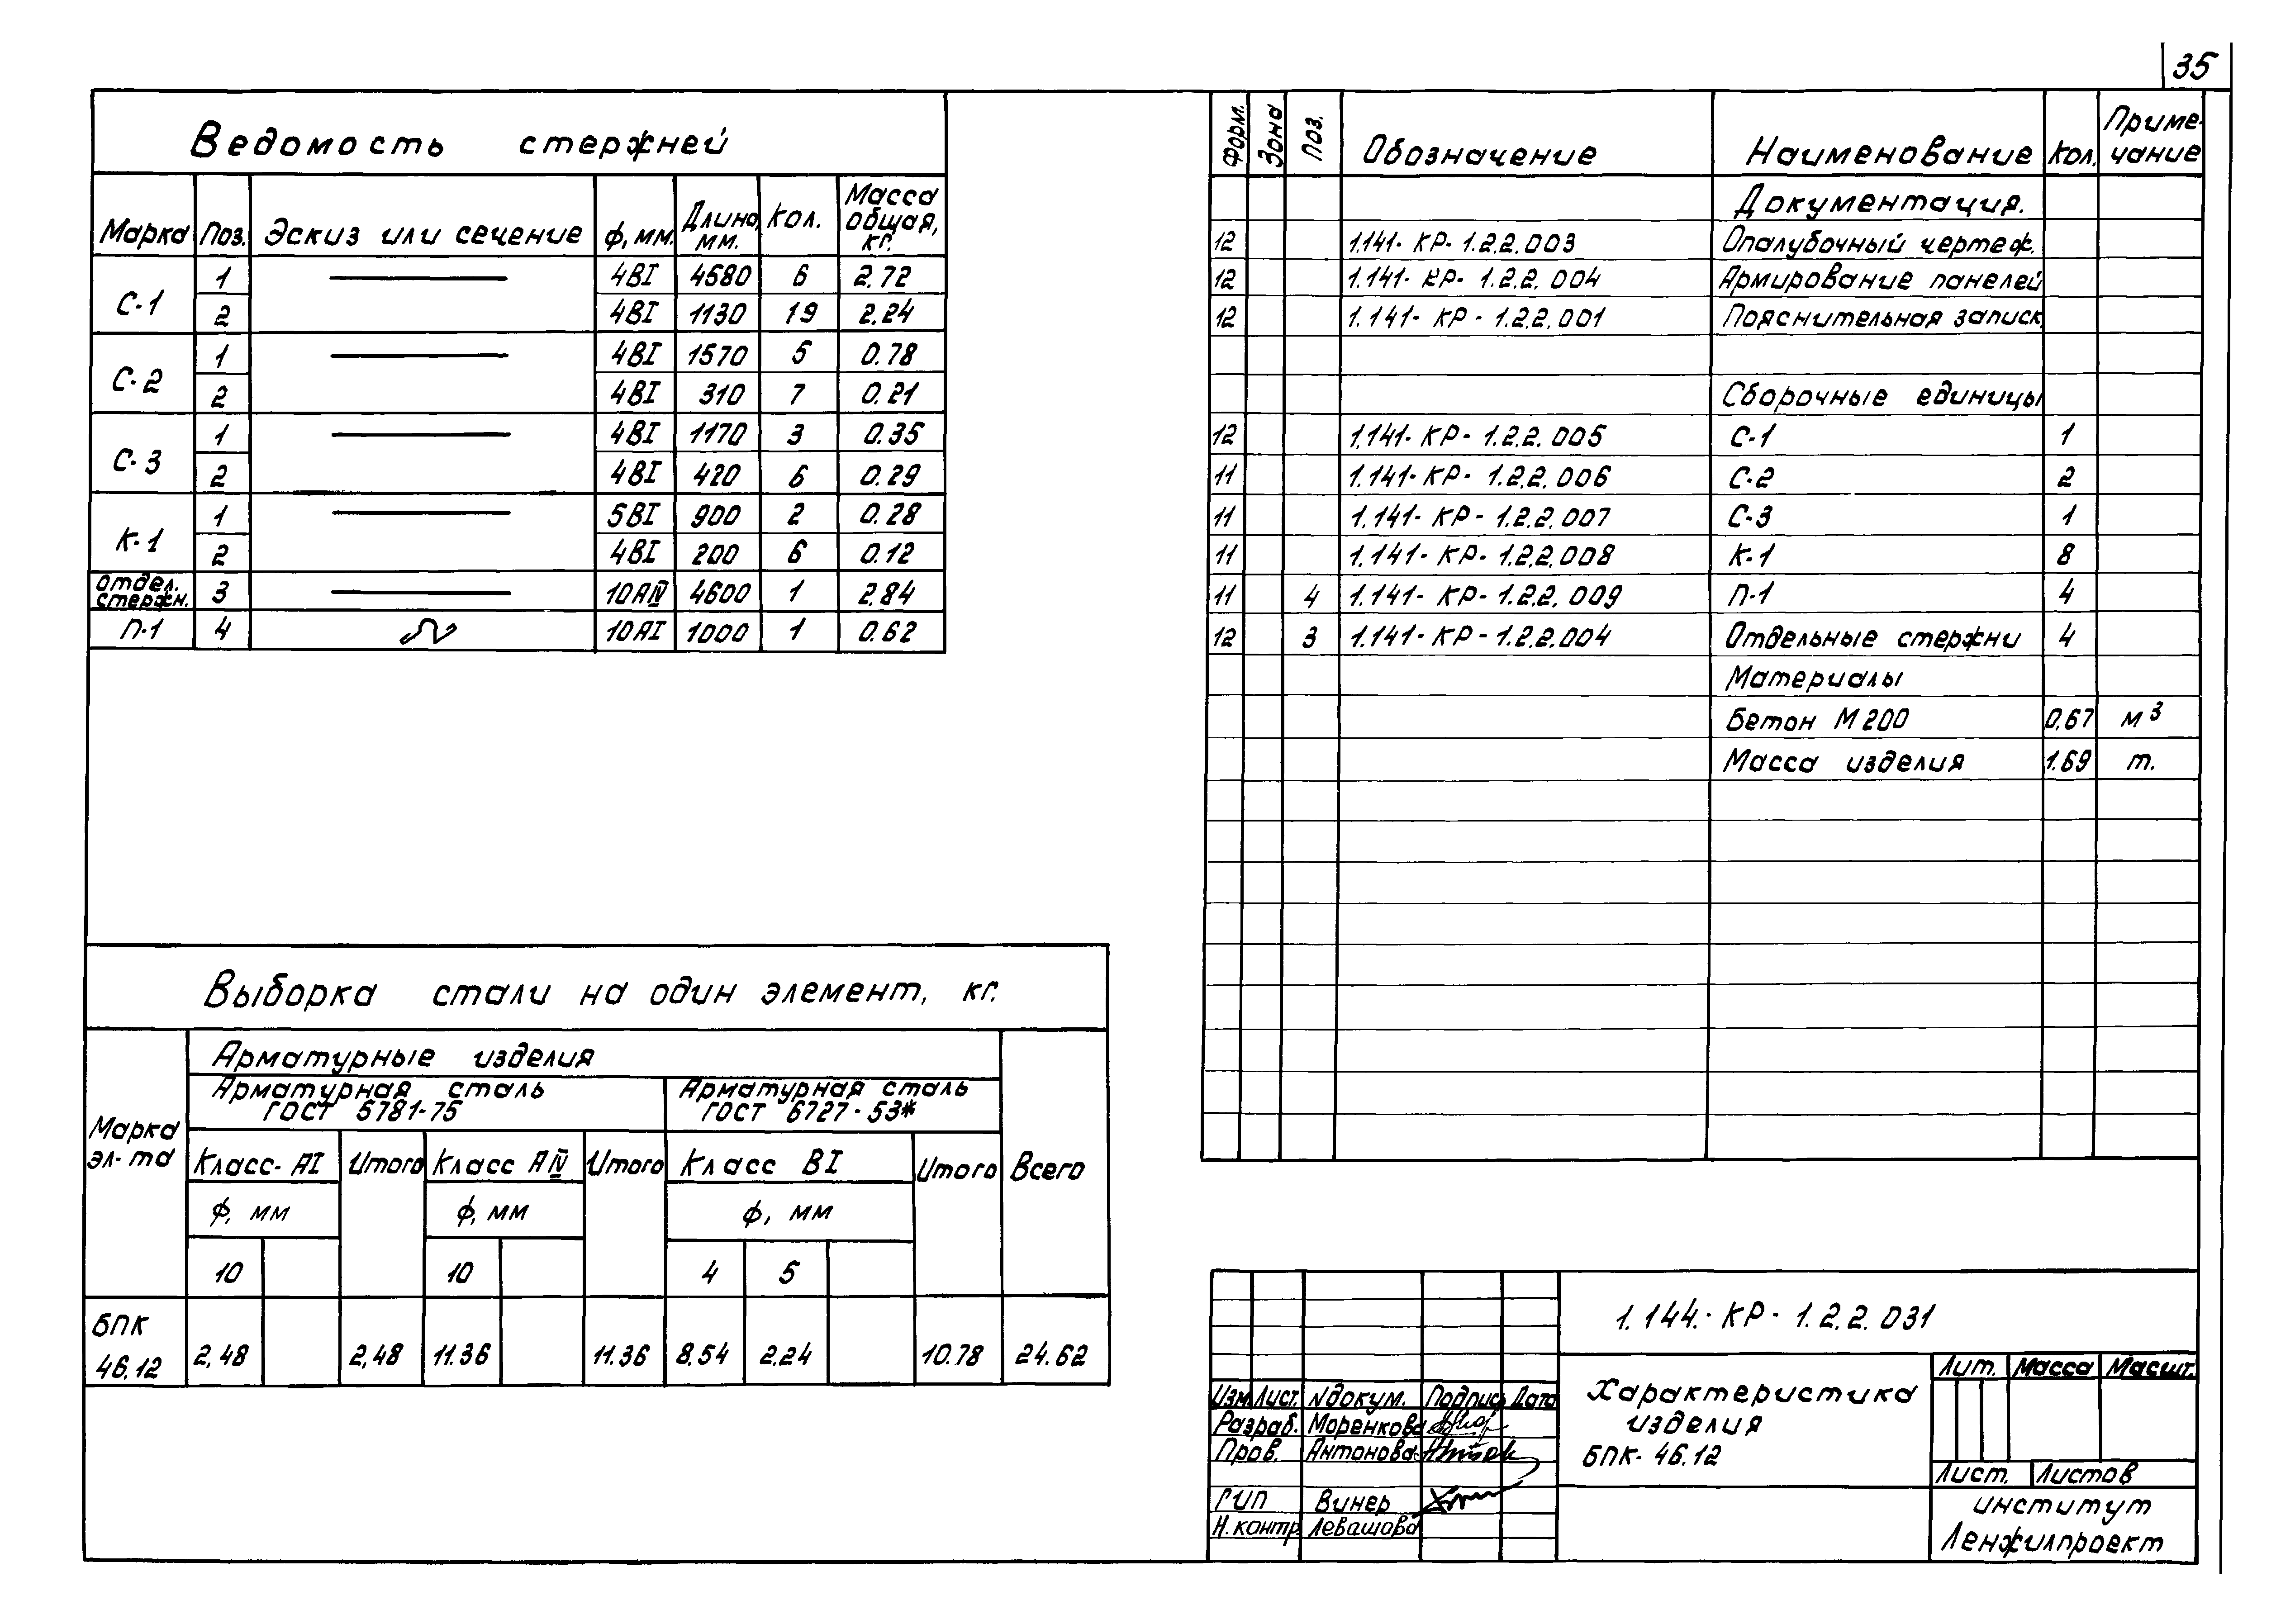 35
Ведомость стержней
Марка Поз. Эскиз или сечение ф, мм. Длина, мм. Кол. Масса общая, кг.
С-1 1 4ВI 4580 6 2.72
2 4ВI 1130 19 2.24
С-2 1 4ВI 1570 5 0.78
2 4ВI 310 7 0.21
С-3 1 4ВI 1170 3 0.35
2 4ВI 420 6 0.29
К-1 1 5ВI 900 2 0.28
2 4ВI 200 6 0.12
отдел. стержн. 3 10АIV 4600 1 2.84
П-1 4 10АI 1000 1 0.62
Выборка стали на один элемент, кг.
Марка эл-та
Арматурные изделия
Арматурная сталь ГОСТ 5781-75
Арматурная сталь ГОСТ 6727-53*
Класс-АI Итого Класс АIV Итого Класс ВI Итого Всего
ф, мм ф, мм ф, мм
10 10 4 5
БПК 46.12 2,48 2,48 11.36 11.36 8.54 2.24 10.78 24.62
Форм. Зона Поз. Обозначение Наименование Кол. Приме-чание
Документация.
12 1.141-КР-1.2.2.003 Опалубочный чертеж.
12 1.141-КР-1.2.2.004 Армирование панелей
12 1.141-КР-1.2.2.001 Пояснительная записк
Сборочные единицы
12 1.141-КР-1.2.2.005 С-1 1
11 1.141-КР-1.2.2.006 С-2 2
11 1.141-КР-1.2.2.007 С-3 1
11 1.141-КР-1.2.2.008 К-1 8
11 4 1.141-КР-1.2.2.009 П-1 4
12 3 1.141-КР-1.2.2.004 Отдельные стержни 4
Материалы
Бетон М200 0,67 м³
Масса изделия 1.69 т.
1.144.-КР-1.2.2.031
Изм. Лист. Nдокум. Подпис Дата
Разраб. Моренкова
Пров. Антонова
ГИП Винер
Н.контр Левашова
Характеристика
изделия
БПК-46.12
Лит. Масса Масшт.
Лист. Листов
институт
Ленжилпроект